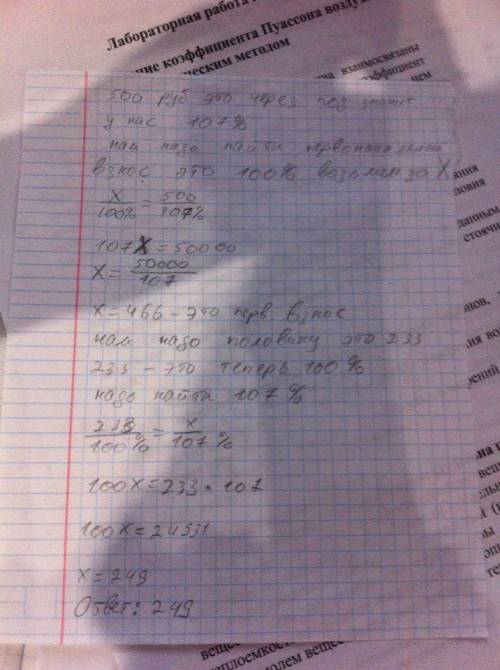 Лабораторная работа
ние коэффициента Пуассона воздух
ческим методом
взаимосвязаны
500 руб это через год значит
у нас 107%
нам надо найти первоначальный
взнос. это 100% возьмем за X
X/100% = 500/107%
107X = 50000
X = 50000/107
x = 466 - это перв. взнос
нам надо половину это 233
233 - это теперь 100%
надо найти 107%
233/100% = x/107%
100x = 233 * 107
100x = 24931
x = 249
Ответ: 249